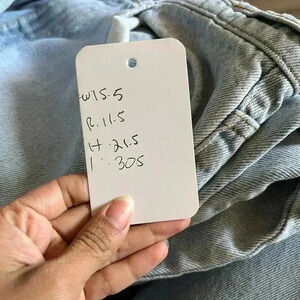 W15.5
R.11.5
H.21.5
I.30.5